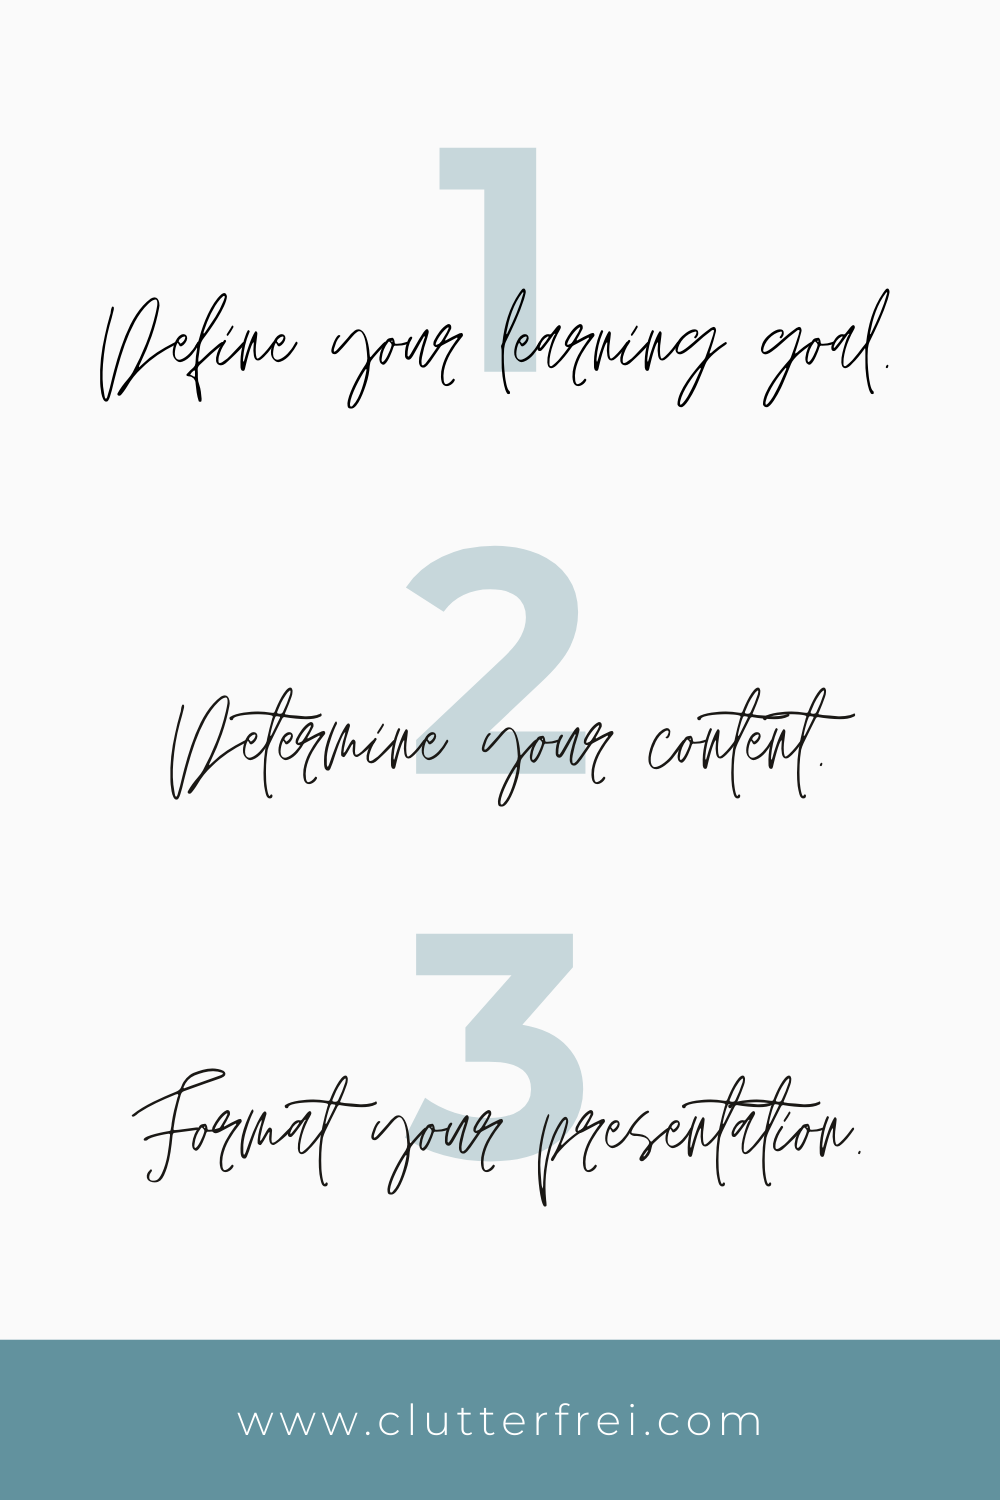 1
Define your learning goal.
2
Determine your content.
3
Format your presentation.
www.clutterfrei.com